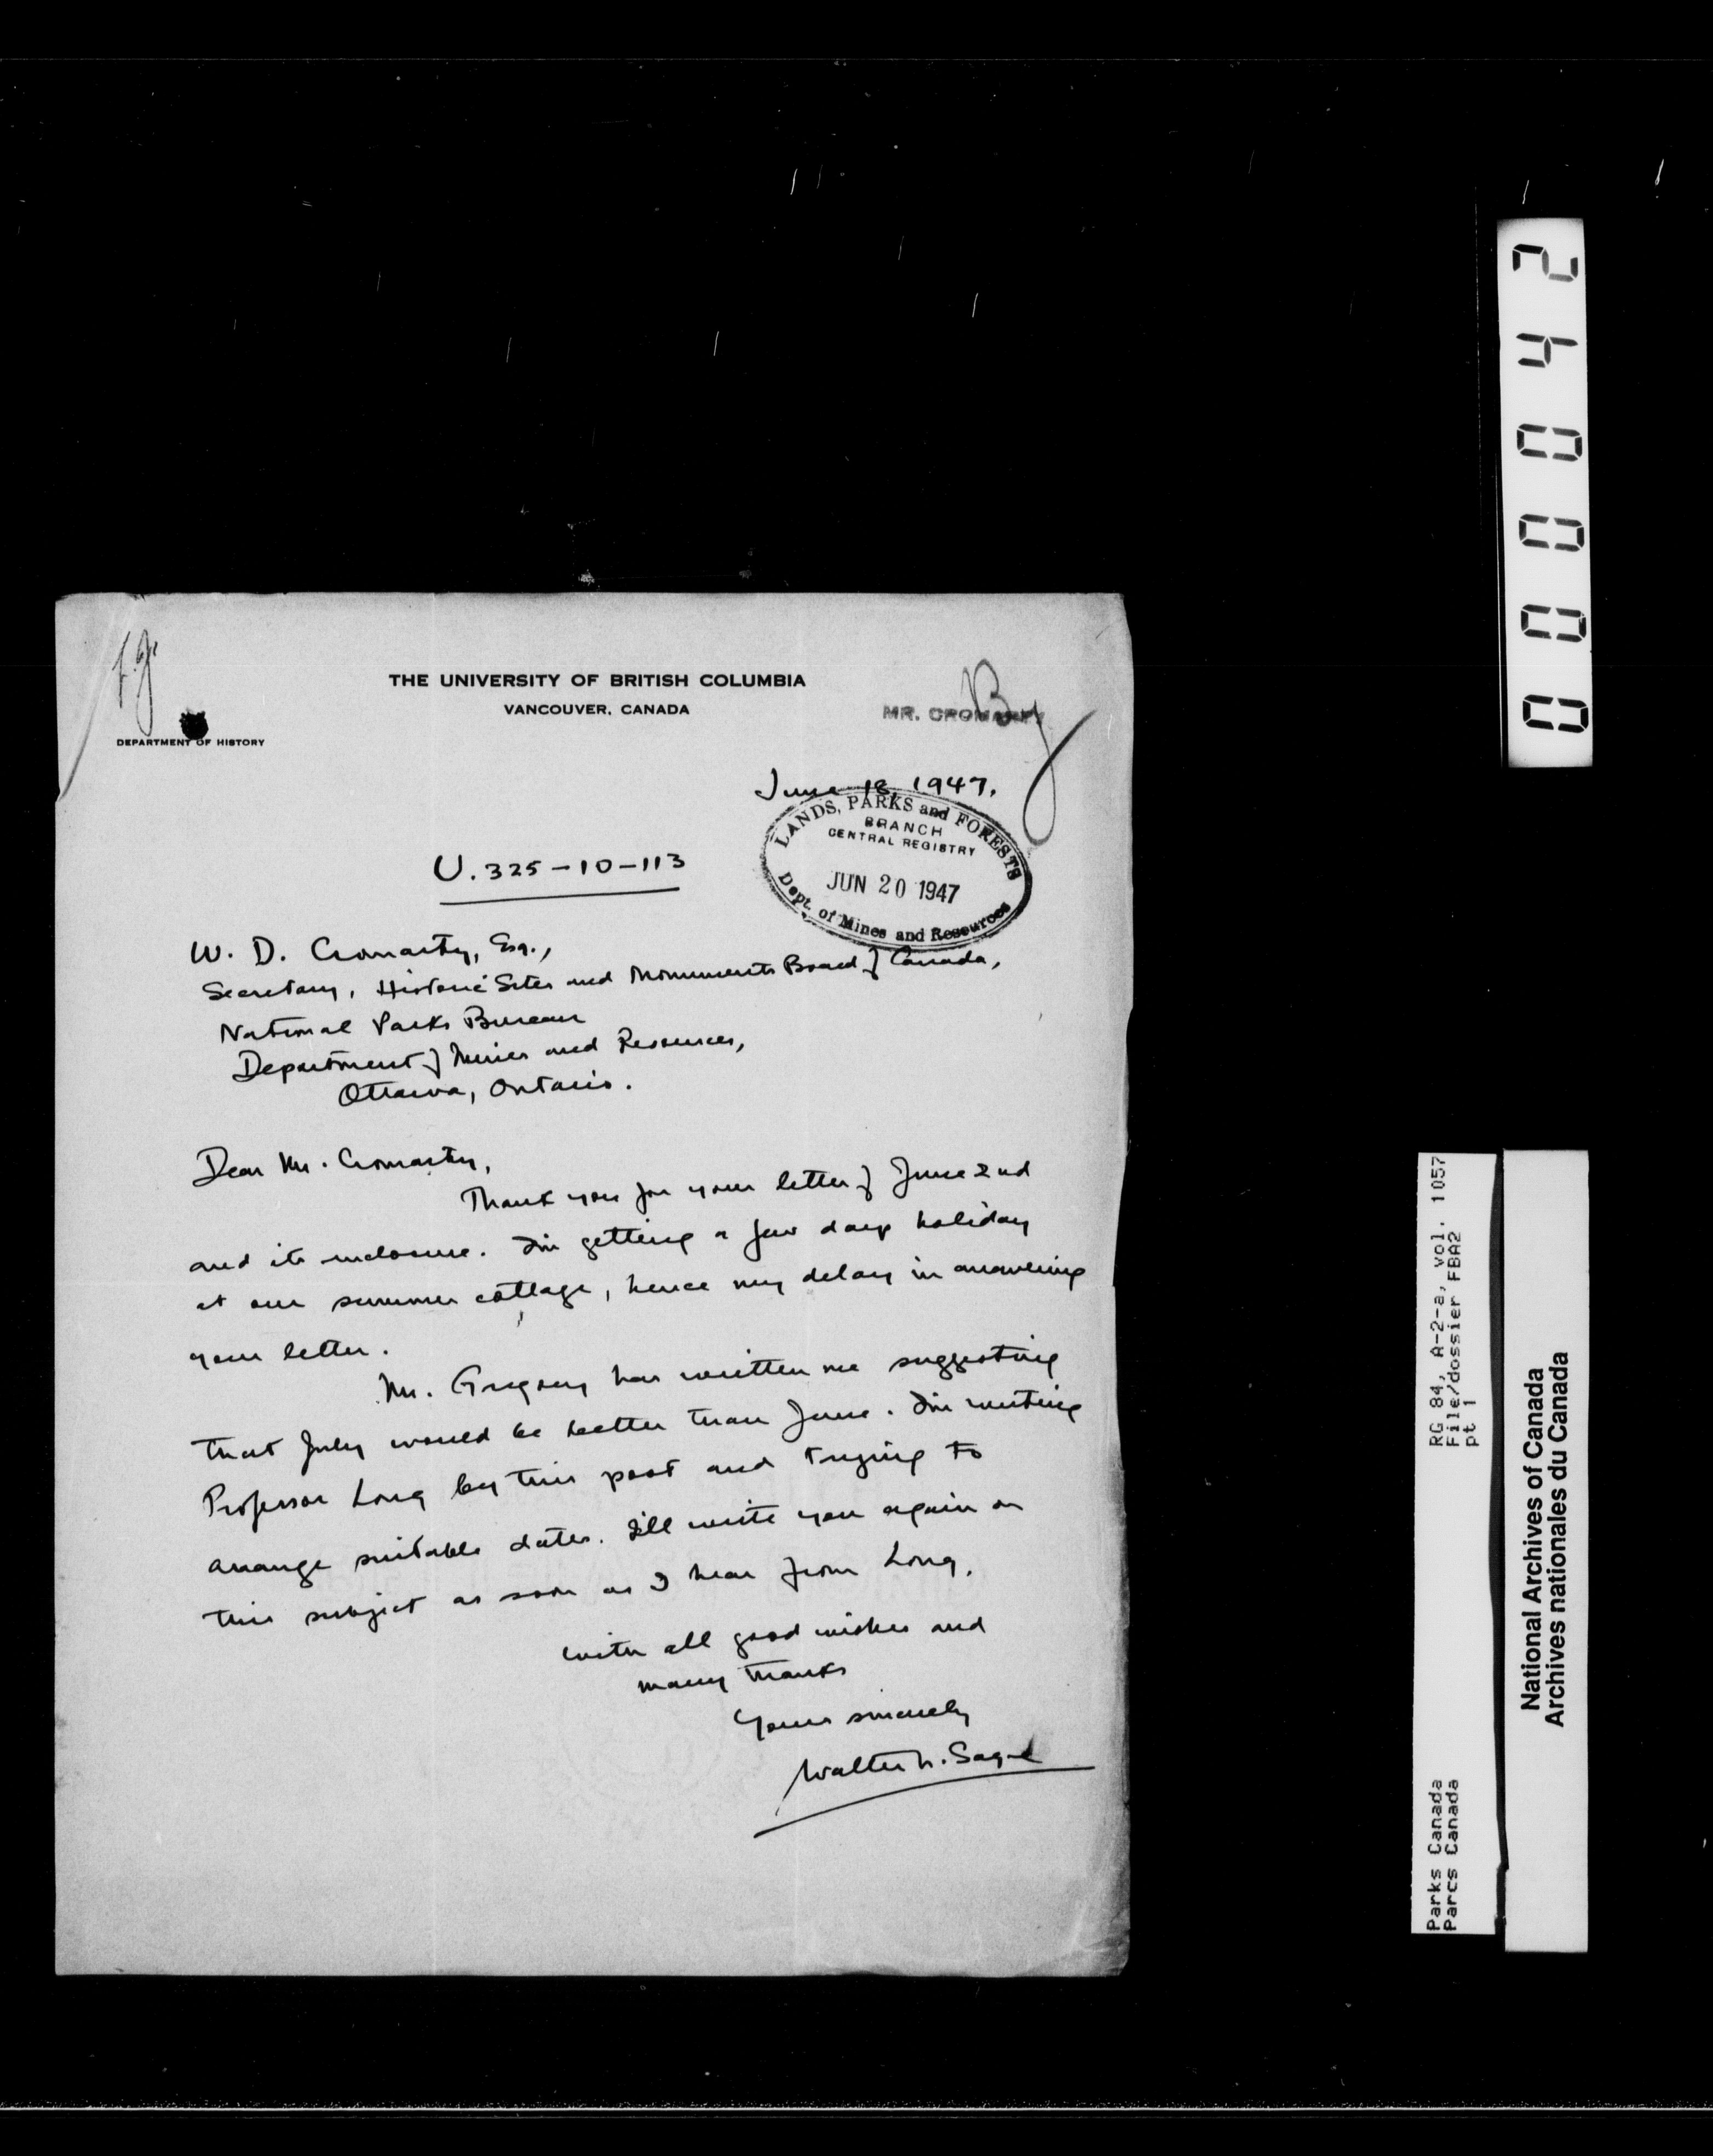 THE UNIVERSITY OF BRITISH COLUMBIA
VANCOUVER, CANADA
DEPARTMENT OF HISTORY
MR. CROMARTY
June 18, 1947.
LANDS, PARKS and FORESTS
BRANCH
CENTRAL REGISTRY
JUN 20 1947
Dept. of Mines and Resources
U. 325-10-113
W. D. Cromarty, Esq.,
Secretary, Historic Sites and Monuments Board of Canada,
National Parks Bureau
Department of Mines and Resources,
Ottawa, Ontario.
Dear Mr. Cromarty,
Thank you for your letter of June 2nd
and its enclosure. I'm getting a few days holiday
at our summer cottage, hence my delay in answering
your letter.
Mr. Gregory has written me suggesting
that July would be better than June. I'm writing
Professor Long by this post and trying to
arrange suitable dates. I'll write you again on
this subject as soon as I hear from Long.
With all good wishes and
many thanks
Yours sincerely
Walter N. Sage
000042
RG 84, A-2-a, vol. 1057
File/dossier FBA2
pt 1
Parks Canada
Parcs Canada
National Archives of Canada
Archives nationales du Canada